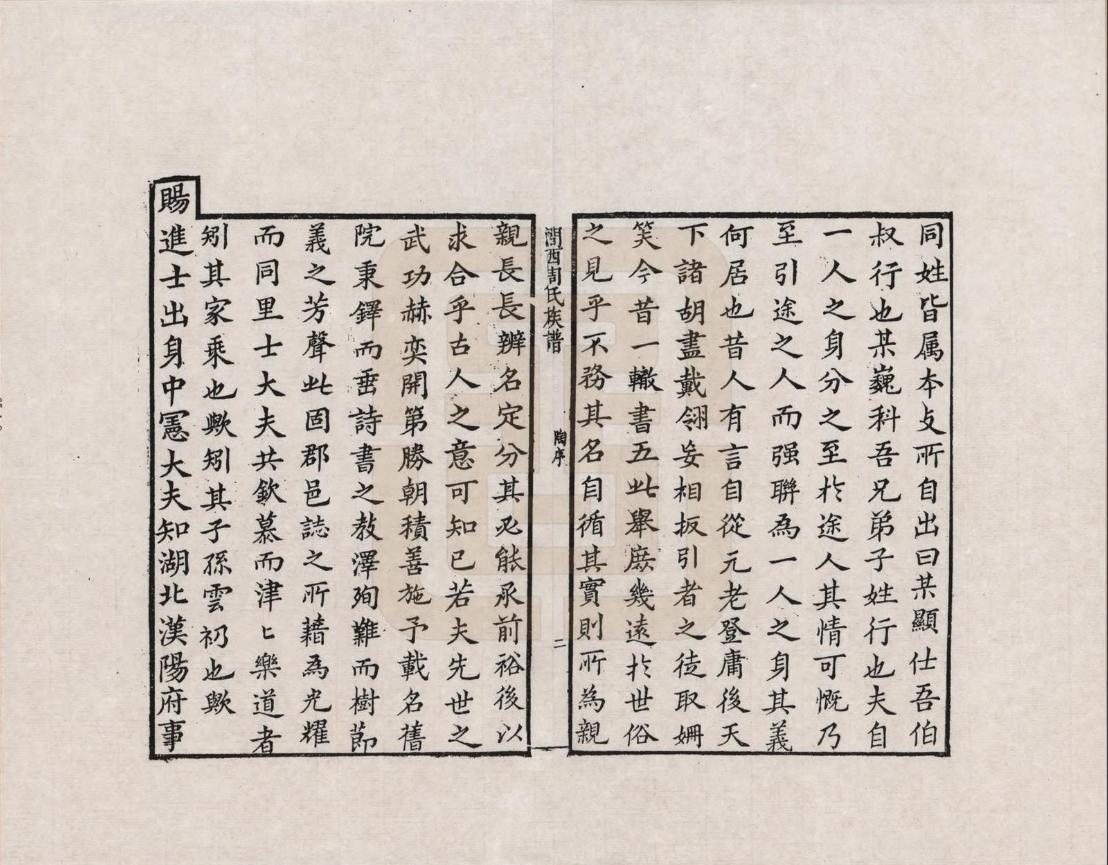 同姓皆属本攴所自出曰某顯仕吾伯
叔行也某巍科吾兄弟子姓行也夫自
一人之身分之至於途人其情可慨乃
至引途之人而强聯為一人之身其義
何居也昔人有言自從元老登庸後天
下諸胡盡戴翎妄相扳引者之徒取姍
笑今昔一轍書五此舉庻幾遠於世俗
之見乎不務其名自循其實則所為親
閩西周氏族譜
陶序
二
親長長辨名定分其必能承前裕後以
求合乎古人之意可知已若夫先世之
武功赫奕開第勝朝積善施予載名舊
院秉鐸而垂詩書之教澤殉難而樹節
義之芳聲此固郡邑誌之所藉為光耀
而同里士大夫共欽慕而津〻樂道者
矧其家乘也歟矧其子孫雲礽也歟
賜進士出身中憲大夫知湖北漢陽府事